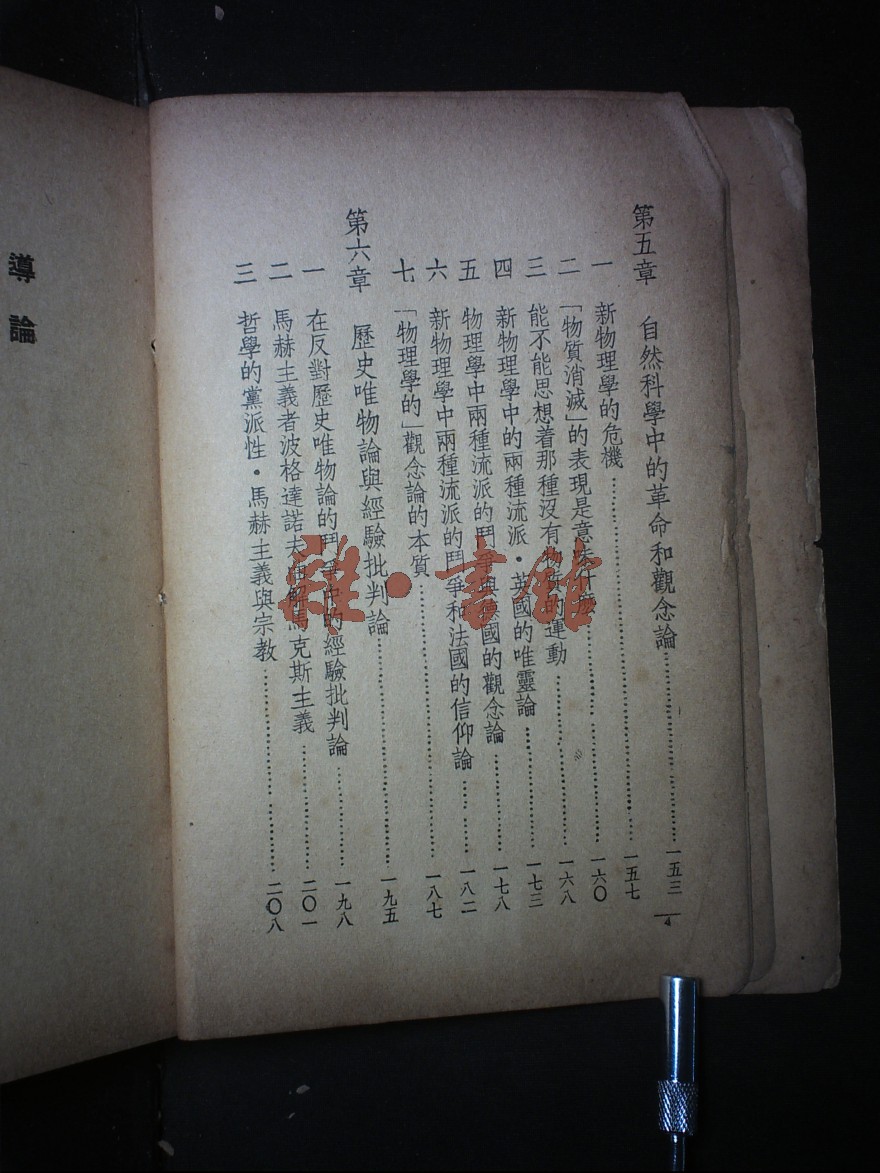 第五章 自然科學中的革命和觀念論 一五三
一 新物理學的危機 一五七
二 「物質消滅」的表現是意味什麼 一六〇
三 能不能思想着那種沒有物質的運動 一六八
四 新物理學中的兩種流派・英國的唯靈論 一七三
五 物理學中兩種流派的鬥爭與德國的觀念論 一七八
六 新物理學中兩種流派的鬥爭和法國的信仰論 一八二
七 「物理學的」觀念論的本質 一八七
第六章 歷史唯物論與經驗批判論 一九五
一 在反對歷史唯物論的鬥爭中的經驗批判論 一九八
二 馬赫主義者波格達諾夫 解馬克斯主義 二〇一
三 哲學的黨派性・馬赫主義與宗教 二〇八
4
導論
雜・書館